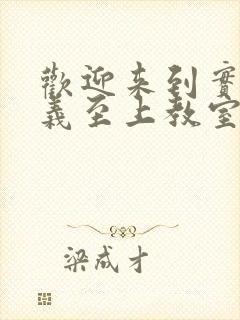 歡迎来到實
義至上教室
梁成才